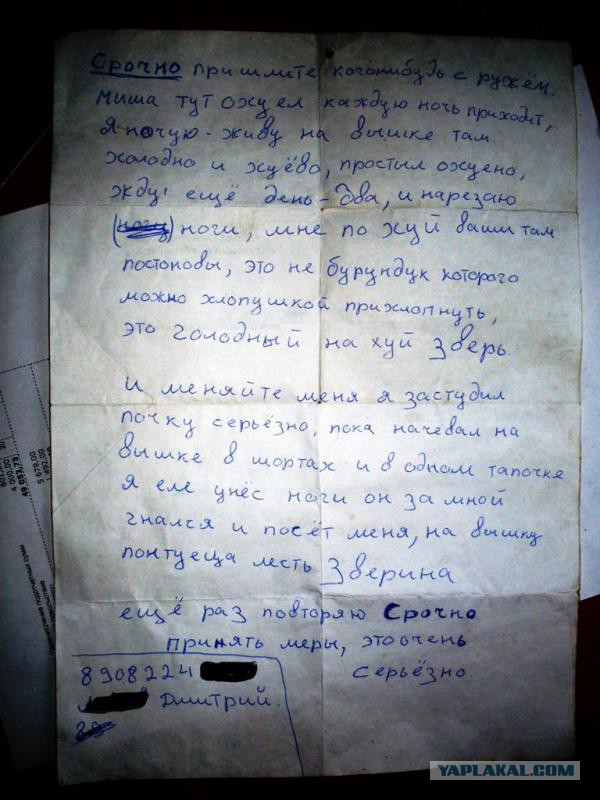 Срочно пришлите когонибудь с ружём.
миша тут охуел каждую ночь приходит,
я ночую - живу на вышке там
холодно и хуёво, простыл охуено,
жду ещё день-два, и нарезаю
(ноги) ноги, мне по хуй ваши там
постоновы, это не бурундук которого
можно хлопушкой прихлопнуть,
это голодный на хуй зверь.
и меняйте меня я застудил
почку серьёзно, пока начевал на
вышке в шортах и в одном тапочке
я еле унёс ноги он за мной
гнался и посёт меня, на вышку
понтуеца лесть Зверина
ещё раз повторяю Срочно
принять меры, это очень
серьёзно.
8908224
Дмитрий.
49 093,73
4 000,00
5 679,00
YAPLAKAL.COM